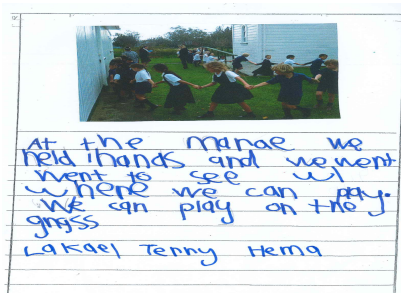 At the manae we
held hands and we went
went to see wl
where we can play.
We can play on the
gnass
Lakael Tenny Hema